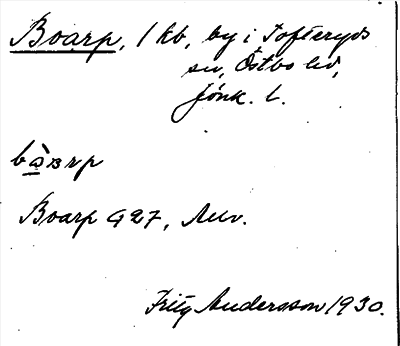 Boarp, 1 kb, by i Tofteryds
sn, Östbo hd,
Jönk. l.
Boarp G27,
Fritz Andersson 1930.